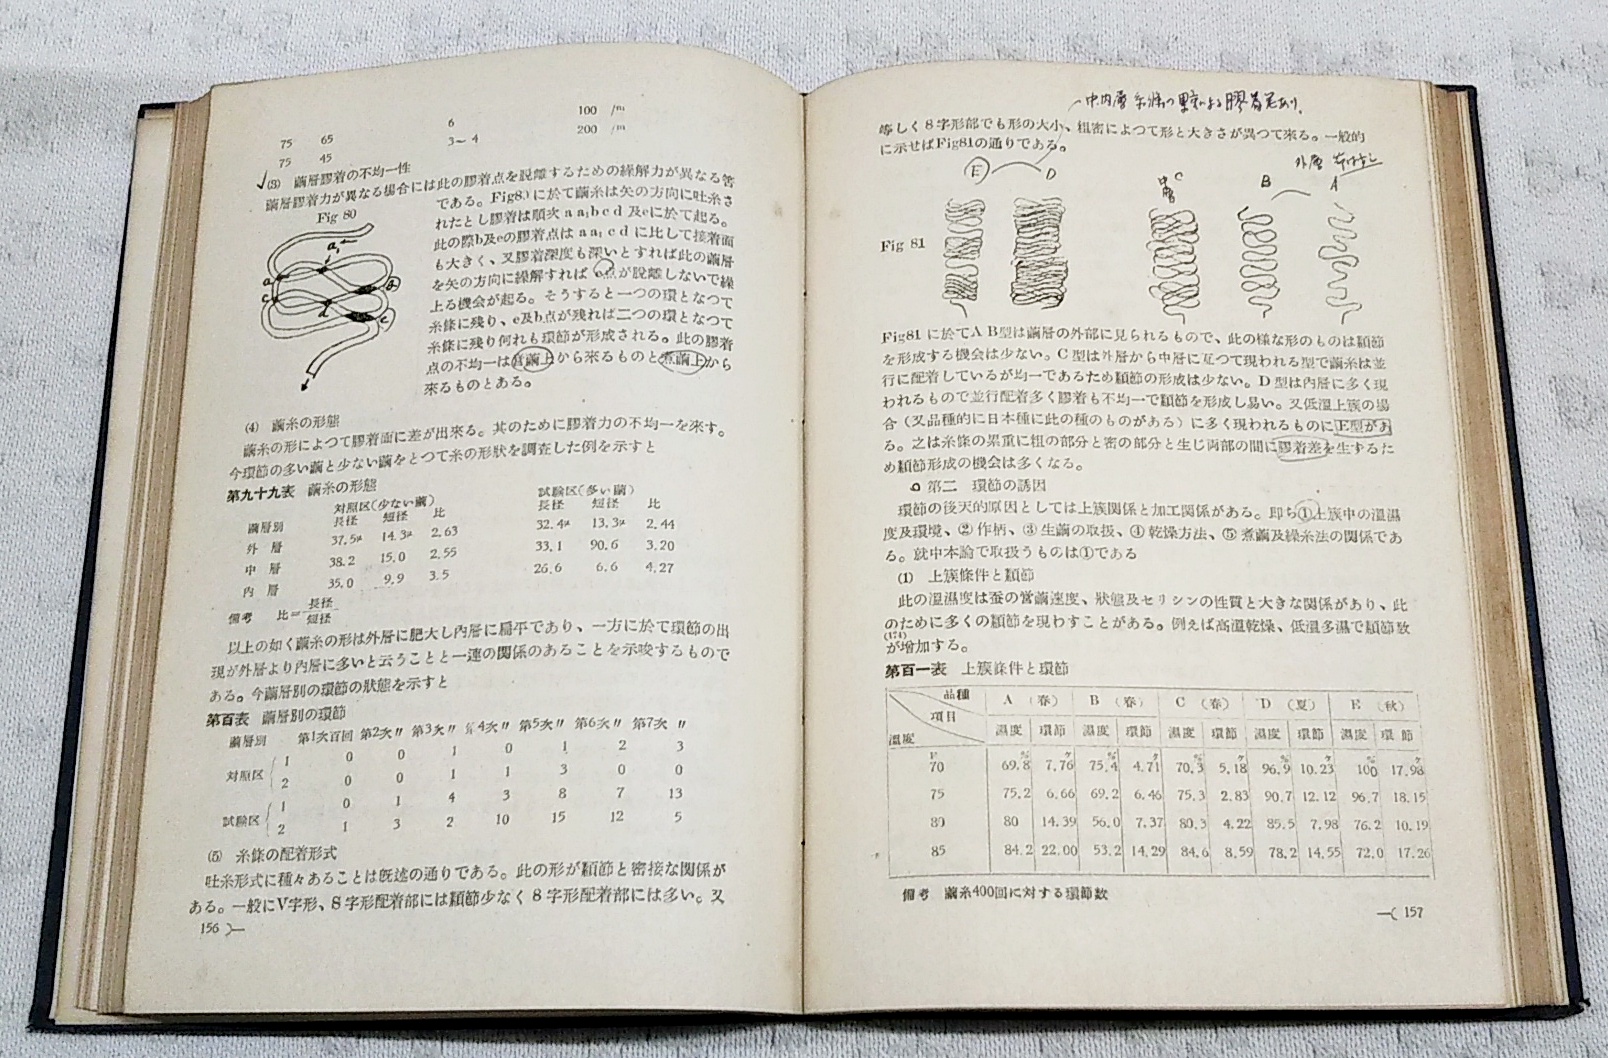 6 100 /m
75 65 3~4 200 /m
75 45
(3) 繭層膠着の不均一性
繭層膠着力が異なる場合には此の膠着点を説離するための繰解力が異なる筈
Fig 80
である。Fig80に於て繭糸は矢の方向に吐糸さ
れたとし膠着は順次 a a₁ b c d 及eに於て起る。
此の際b及eの膠着点は a a₁ c d に比して接着面
も大きく、又膠着深度も深いとすれば此の繭層
を矢の方向に繰解すれば e点が説離しないで繰
上る機会が起る。そうすると一つの環となつて
糸條に残り、e及b点が残れば二つの環となつて
糸條に残り何れも環節が形成される。此の膠着
点の不均一は営繭上から來るものと煮繭上から
來るものとある。
a₁
a
b
c
d
e
(4) 繭糸の形態
繭糸の形によつて膠着面に差が出來る。其のために膠着力の不均一を來す。
今環節の多い繭と少ない繭をとつて糸の形狀を調査した例を示すと
第九十九表 繭糸の形態
対照区(少ない繭) 試験区(多い繭)
繭層別 長径 短径 比 長径 短径 比
外層 37.5μ 14.3μ 2.63 32.4μ 13.3μ 2.44
中層 38.2 15.0 2.55 33.1 90.6 3.20
内層 35.0 9.9 3.5 26.6 6.6 4.27
備考 比=長径/短径
以上の如く繭糸の形は外層に肥大し内層に扁平であり、一方に於て環節の出
現が外層より内層に多いと云うことと一連の関係のあることを示唆するもので
ある。今繭層別の環節の狀態を示すと
第百表 繭層別の環節
繭層別 第1次百回 第2次〃 第3次〃 第4次〃 第5次〃 第6次〃 第7次〃
対照区 1 0 0 1 0 1 2 3
2 0 0 1 1 3 0 0
試験区 1 0 1 4 3 8 7 13
2 1 3 2 10 15 12 5
(5) 糸條の配着形式
吐糸形式に種々あることは既述の通りである。此の形が類節と密接な関係が
ある。一般にV字形、S字形配着部には類節少なく8字形配着部には多い。又
156
中内層
膠着
等しく8字形部でも形の大小、粗密によつて形と大きさが異つて來る。一般的
に示せばFig81の通りである。
外層
E D 中層 C B A
Fig 81
Fig81に於てA B型は繭層の外部に見られるもので、此の様な形のものは類節
を形成する機会は少ない。C型は外層から中層に亙つて現われる型で繭糸は並
行に配着しているが均一であるため類節の形成は少ない。D型は内層に多く現
われるもので並行配着多く膠着も不均一で類節を形成し易い。又低温上族の場
合（又品種的に日本種に此の種のものがある）に多く現われるものにE型があ
る。之は糸條の累重に粗の部分と密の部分と生じ両部の間に膠着差を生ずるた
め類節形成の機会は多くなる。
第二 環節の誘因
環節の後天的原因としては上族関係と加工関係がある。即ち①上族中の温濕
度及環境、②作柄、③生繭の取扱、④乾燥方法、⑤煮繭及繰糸法の関係であ
る。就中本論で取扱うものは①である
(1) 上族條件と類節
此の温濕度は蚕の営繭速度、狀態及セリシンの性質と大きな関係があり、此
のために多くの類節を現わすことがある。例えば高温乾燥、低温多濕で類節数
(174)
が増加する。
第百一表 上族條件と環節
品種 項目 温度 A（春） B（春） C（春） D（夏） E（秋）
濕度 環節 濕度 環節 濕度 環節 濕度 環節 濕度 環節
F % ケ % ケ % ケ % ケ % ケ
70 69.8 7.76 75.4 4.71 70.3 5.18 96.9 10.23 100 17.98
75 75.2 6.66 69.2 6.46 75.3 2.83 90.7 12.12 96.7 18.15
80 80 14.39 56.0 7.37 80.3 4.22 85.5 7.98 76.2 10.19
85 84.2 22.00 53.2 14.29 84.6 8.59 78.2 14.55 72.0 17.26
備考 繭糸400回に対する環節数
157